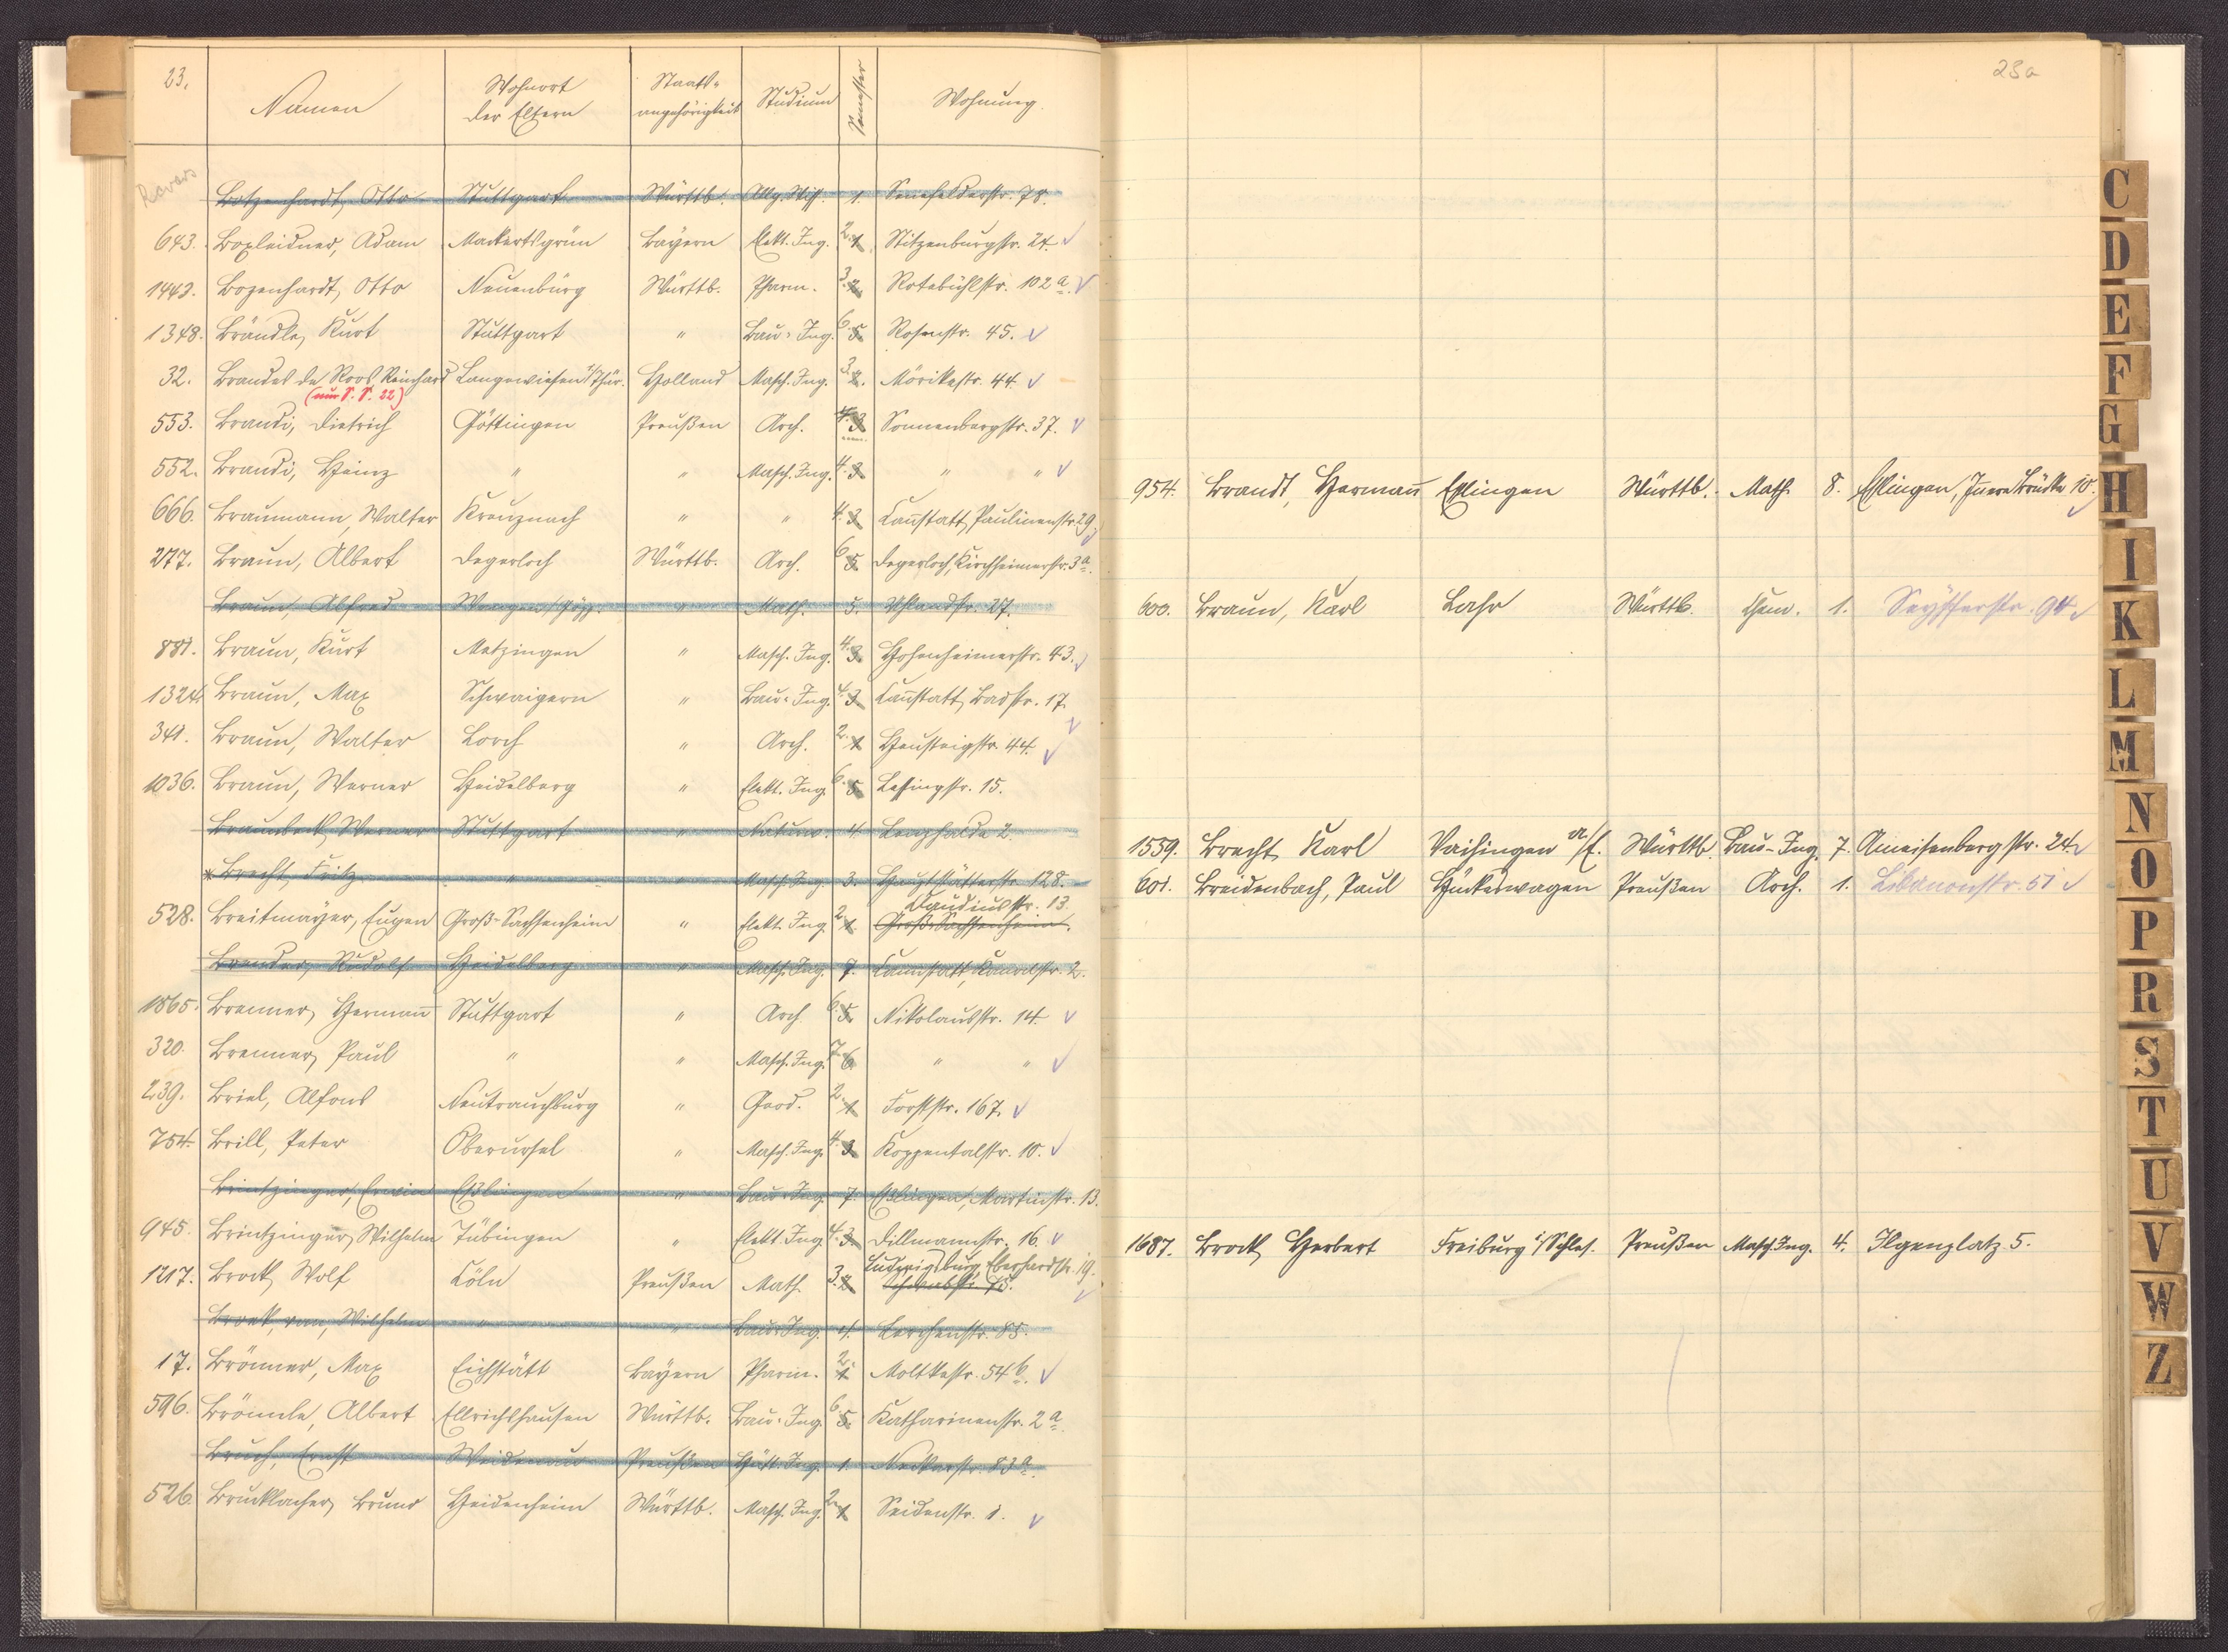 23.
Namen Wohnort der Eltern Staats-angehörigkeit Studium Semester Wohnung.
Botzenhardt, Otto Stuttgart Württb. Allg. Wiss. 1. Senefelderstr. 78.
643. Boxleidner, Adam Markertsgrün Bayern Elekt. Ing. 2. 1. Stitzenburgstr. 24.
1443. Bozenhardt, Otto Neuenbürg Württb. Pharm. 3. 2. Rotebühlstr. 102 a.
1348. Brändle, Kurt Stuttgart " Bau-Ing. 6. 5. Rosenstr. 45.
32. Brandes de Roos, Reinhard Langewiesen i/Thür. Holland Masch. Ing. 3. 2. Mörikestr. 44.
(nur S. S. 22)
553. Brandi, Dietrich Göttingen Preußen Arch. 4. 3. Sonnenbergstr. 37.
552. Brandi, Heinz " " Masch. Ing. 4. 3. " "
666. Braumann, Walter Kreuznach " " 4. 3. Cannstatt, Paulinenstr. 29.
277. Braun, Albert Degerloch Württb. Arch. 6. 5. Degerloch, Kirchheimerstr. 3 a.
Braun, Alfred Wangen/Göpp. " Math. 5. Uhlandstr. 27.
881. Braun, Kurt Metzingen " Masch. Ing. 4. 3. Hohenheimerstr. 43.
1324. Braun, Max Schwaigern " Bau-Ing. 4. 3. Cannstatt, Badstr. 17.
341. Braun, Walter Lorch " Arch. 2. 1. Heusteigstr. 44.
1036. Braun, Werner Heidelberg " Elekt. Ing. 6. 5. Lessingstr. 15.
Braunbeck, Werner Stuttgart " Naturw. 4. Lenzhalde 2.
* Brecht, Fritz " " Masch. Ing. 3. Hauptstätterstr. 128.
Claudiusstr. 13
528. Breitmayer, Eugen Groß-Sachsenheim " Elekt. Ing. 2. 1. Groß-Sachsenheim.
Brender, Rudolf Heidelberg " Masch. Ing. 7. Cannstatt, Kanalstr. 2.
1865. Brenner, Hermann Stuttgart " Arch. 6. 5. Nikolausstr. 14.
320. Brenner, Paul " " Masch. Ing. 7. 6. " "
239. Briel, Alfons Neutrauchburg " Geod. 2. 1. Forststr. 167.
754. Brill, Peter Oberursel " Masch. Ing. 4. 3. Koppentalstr. 10.
Brintzinger, Erwin Eßlingen " Bau-Ing. 7. Eßlingen, Martinstr. 13.
945. Brintzinger, Wilhelm Tübingen " Elekt. Ing. 4. 3. Dillmannstr. 16
Ludwigsburg, Eberhardstr. 19.
1217. Brock, Wolf Cöln Preußen Math. 3. 2. Schwabstr. 75.
Broek, van, Wilhelm " " Bau-Ing. 4. Lerchenstr. 85.
17. Brönner, Max Eichstätt Bayern Pharm. 2. 1. Moltkestr. 54 b.
596. Brömle, Albert Ellrichshausen Württb. Bau-Ing. 6. 5. Katharinenstr. 2 a.
Bruch, Ernst Weidenau Preußen Hütt. Ing. 1. Neckarstr. 83 a.
526. Brucklacher, Bruno Heidenheim Württb. Masch. Ing. 2. 1. Seidenstr. 1.
23a
954. Brandt, Hermann Eßlingen Württb. Math. 8. Eßlingen, Innere Brücke 10.
600. Braun, Karl Lahr Württb. Chem. 1. Seyfferstr. 94
1559. Brecht, Karl Vaihingen a/E. Württb. Bau-Ing. 7. Ameisenbergstr. 24.
601. Breidenbach, Paul Hückeswagen Preußen Arch. 1. Libanonstr. 51
1687. Brock, Herbert Freiburg i/Schles. Preußen Masch. Ing. 4. Ilgenplatz 5.
C
D
E
F
G
H
I
K
L
M
N
O
P
R
S
T
U
V
W
Z